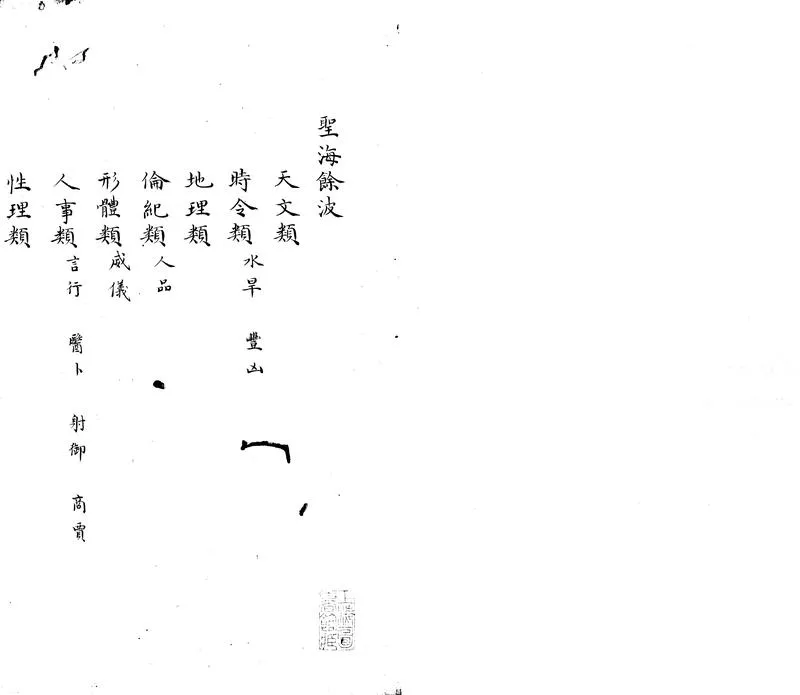 聖海餘波
天文類
時令類 水旱 豐凶
地理類
倫紀類 人品
形體類 威儀
人事類 言行 醫卜 射御 商賈
性理類